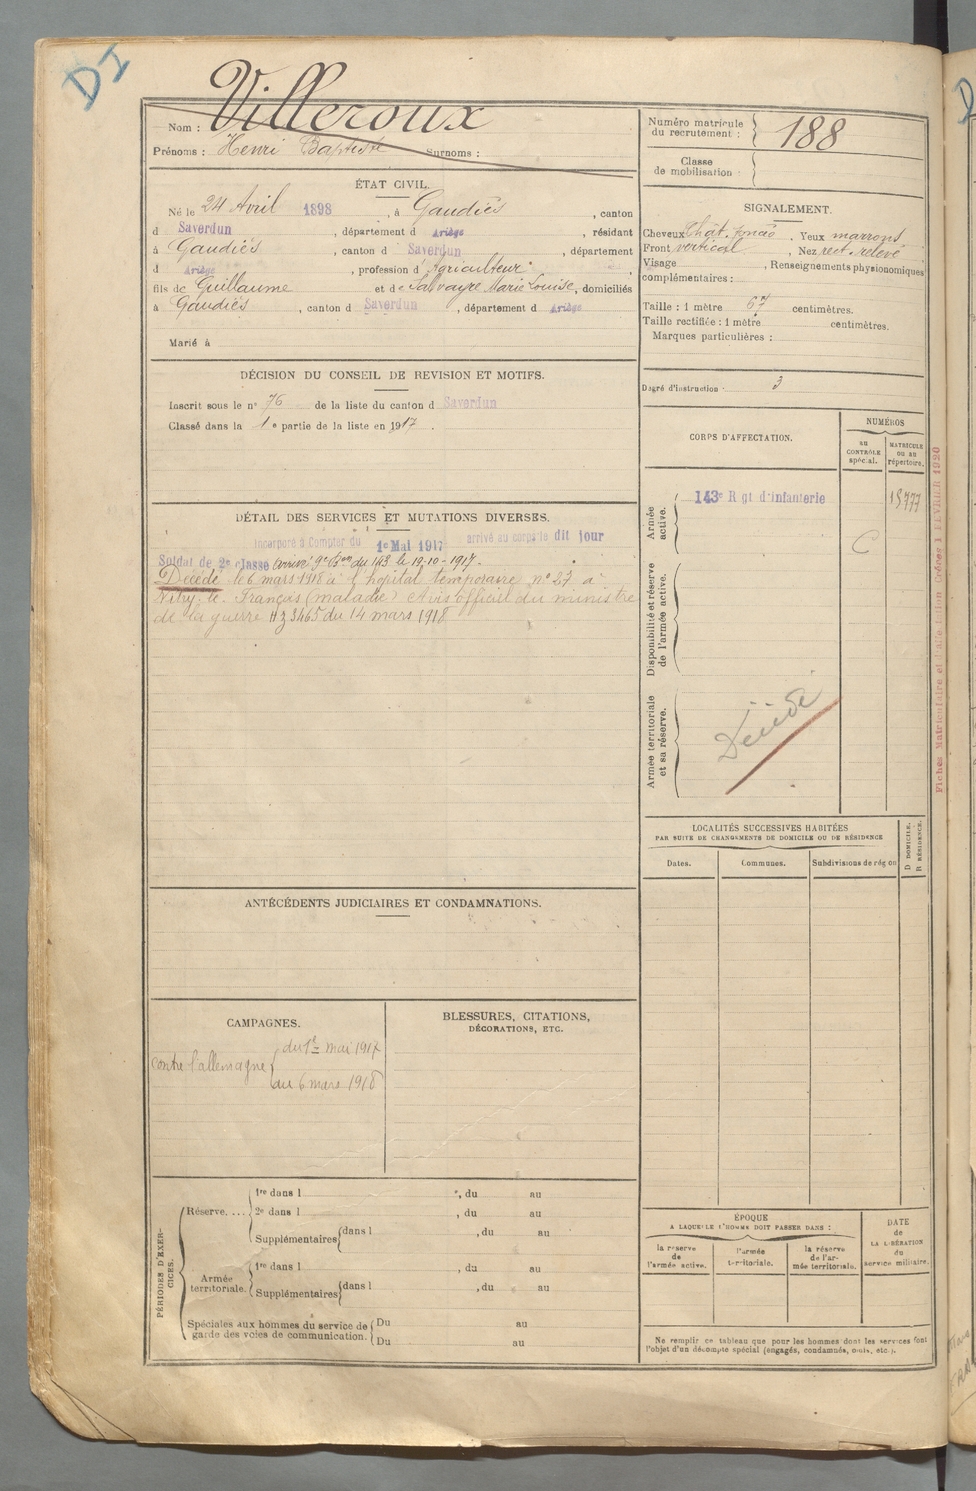 DI
Nom : Villeroux
Prénoms : Henri Baptiste Surnoms :
Numéro matricule du recrutement : 188
Classe de mobilisation :
ÉTAT CIVIL.
Né le 24 Avril 1898, à Gaudiès, canton
d Saverdun, département d Ariège, résidant
à Gaudiès, canton d Saverdun, département
d Ariège, profession d'Agriculteur
fils de Guillaume et de Salvayre Marie Louise, domiciliés
à Gaudiès, canton d Saverdun, département d Ariège
Marié à
SIGNALEMENT.
Cheveux Chât. foncés. Yeux marrons
Front vertical, Nez rect. relevé
Visage , Renseignements physionomiques
complémentaires :
Taille : 1 mètre 67 centimètres.
Taille rectifiée : 1 mètre centimètres.
Marques particulières :
Degré d'instruction : 3
DÉCISION DU CONSEIL DE REVISION ET MOTIFS.
Inscrit sous le n° 76 de la liste du canton d Saverdun
Classé dans la 1e partie de la liste en 1917.
CORPS D'AFFECTATION.
NUMÉROS
au contrôle spécial.
matricule ou au répertoire.
Armée active.
143e Rgt d'infanterie
15777
C
Disponibilité et réserve de l'armée active.
Armée territoriale et sa réserve.
Décédé
DÉTAIL DES SERVICES ET MUTATIONS DIVERSES.
Incorporé à Compter du 1e Mai 1917 arrivé au corps le dit jour
Soldat de 2e classe arrivé 9e Bon du 143 le 19-10-1917.
Décédé le 6 mars 1918 à l'hôpital temporaire n° 27 à
Vitry-le-François (maladie) Avis officiel du ministre
de la guerre HZ 3465 du 14 mars 1918
Fiches Matriculaire et
FEVRIER 1920
LOCALITÉS SUCCESSIVES HABITÉES
PAR SUITE DE CHANGEMENTS DE DOMICILE OU DE RÉSIDENCE
Dates.
Communes.
Subdivisions de région
D DOMICILE.
R RÉSIDENCE.
ANTÉCÉDENTS JUDICIAIRES ET CONDAMNATIONS.
CAMPAGNES.
contre l'allemagne
du 1er mai 1917
au 6 mars 1918
BLESSURES, CITATIONS,
DÉCORATIONS, ETC.
PÉRIODES D'EXERCICES.
Réserve....
1re dans l , du au
2e dans l , du au
Supplémentaires dans l , du au
Armée territoriale.
1re dans l , du au
Supplémentaires dans l , du au
Spéciales aux hommes du service de garde des voies de communication.
Du au
Du au
ÉPOQUE
A LAQUELLE L'HOMME DOIT PASSER DANS :
la réserve de l'armée active.
l'armée territoriale.
la réserve de l'armée territoriale.
DATE de LA LIBÉRATION du service militaire.
Ne remplir ce tableau que pour les hommes dont les services font
l'objet d'un décompte spécial (engagés, condamnés, omis, etc.).